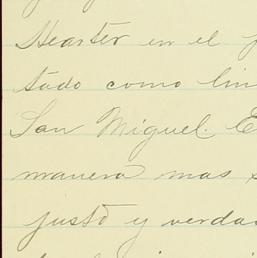 Hearter en el
tado como lin
San Miguel. E
manera mas s
justo y verda